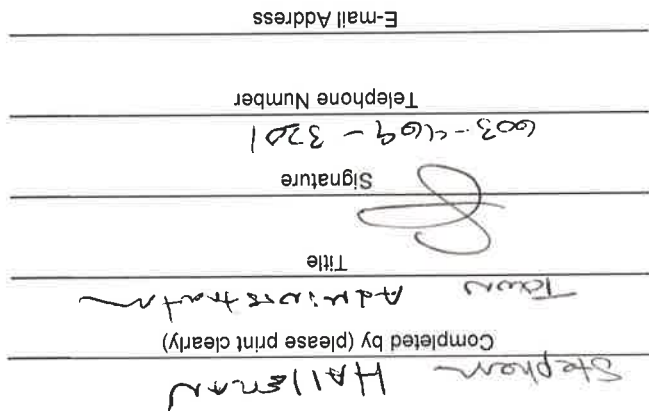 Stephen HAlleran
Completed by (please print clearly)
Town Administrator
Title
Signature
603-469-3201
Telephone Number
E-mail Address